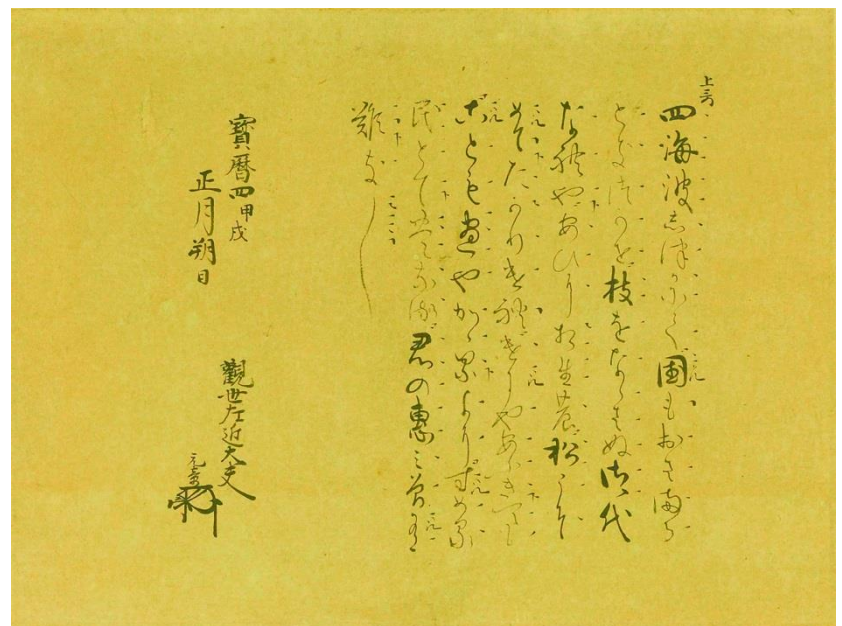 上哥
四海波志津かにて国もおさまる
とき津かせ枝をならさぬ御代
なれやあひに相生の松こそ
めてたかりけれげにやあふきても
ことも愚やかゝるよにすめる
民とてゆたかなる君の恵ミそ有
難き
寶暦四甲戌
正月朔日
觀世左近大夫
元章